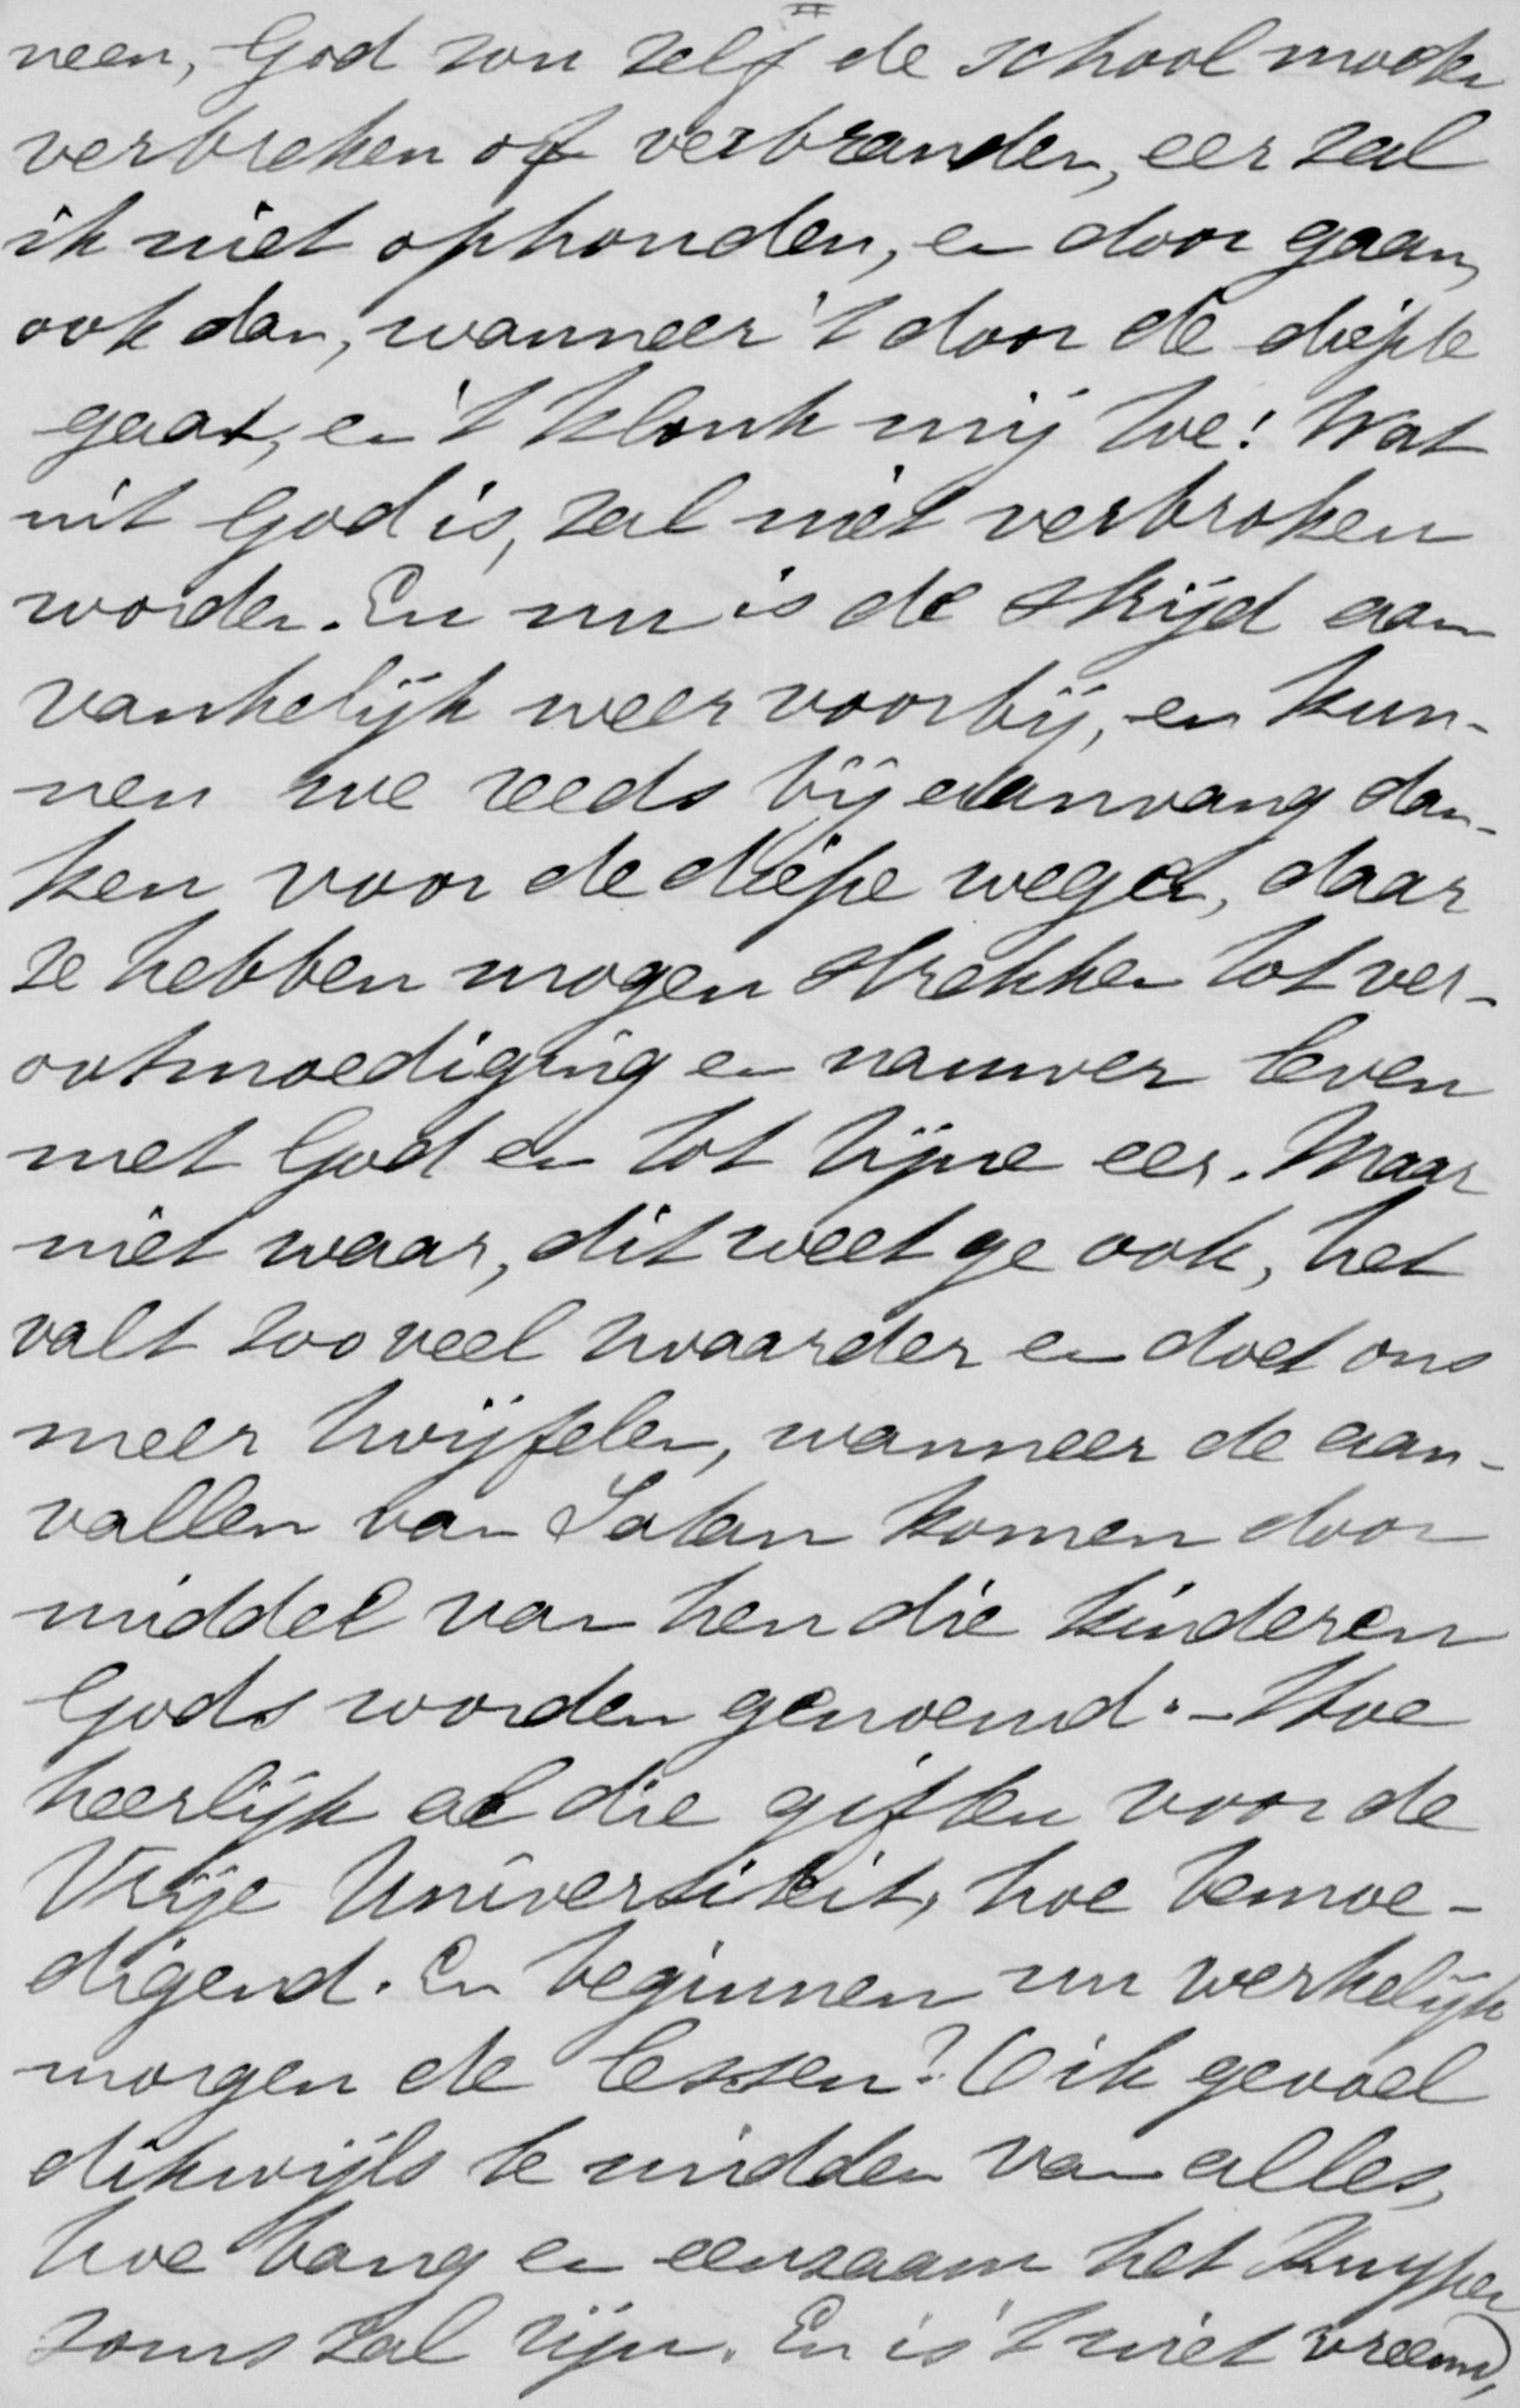 II
neen, God zou zelf de school moeten
verbreken of verbranden, eer zal
ik niet ophouden, en door gaan,
ook dan, wanneer 't door de diepte
gaat, en 't klonk mij toe: Wat
uit God is, zal niet verbroken
worden. En nu is de strijd aan
vankelijk weer voorbij, en kun-
nen we reeds bij aanvang dan-
ken voor de diepe wegen, daar
ze hebben mogen strekken tot ver-
ootmoediging en nauwer leven
met God en tot Zijne eer. Maar
niet waar, dit weet ge ook, het
valt zoo veel zwaarder en doet ons
meer twijfelen, wanneer de aan-
vallen van Satan komen door
middel van hen die kinderen
Gods worden genoemd. - Hoe
heerlijk al die giften voor de
Vrije Universiteit, hoe bemoe-
digend. En beginnen nu werkelijk
morgen de lessen? O ik gevoel
dikwijls te midden van alles,
hoe bang en eenzaam het Kuyper
soms zal zijn. En is 't niet vreemd,